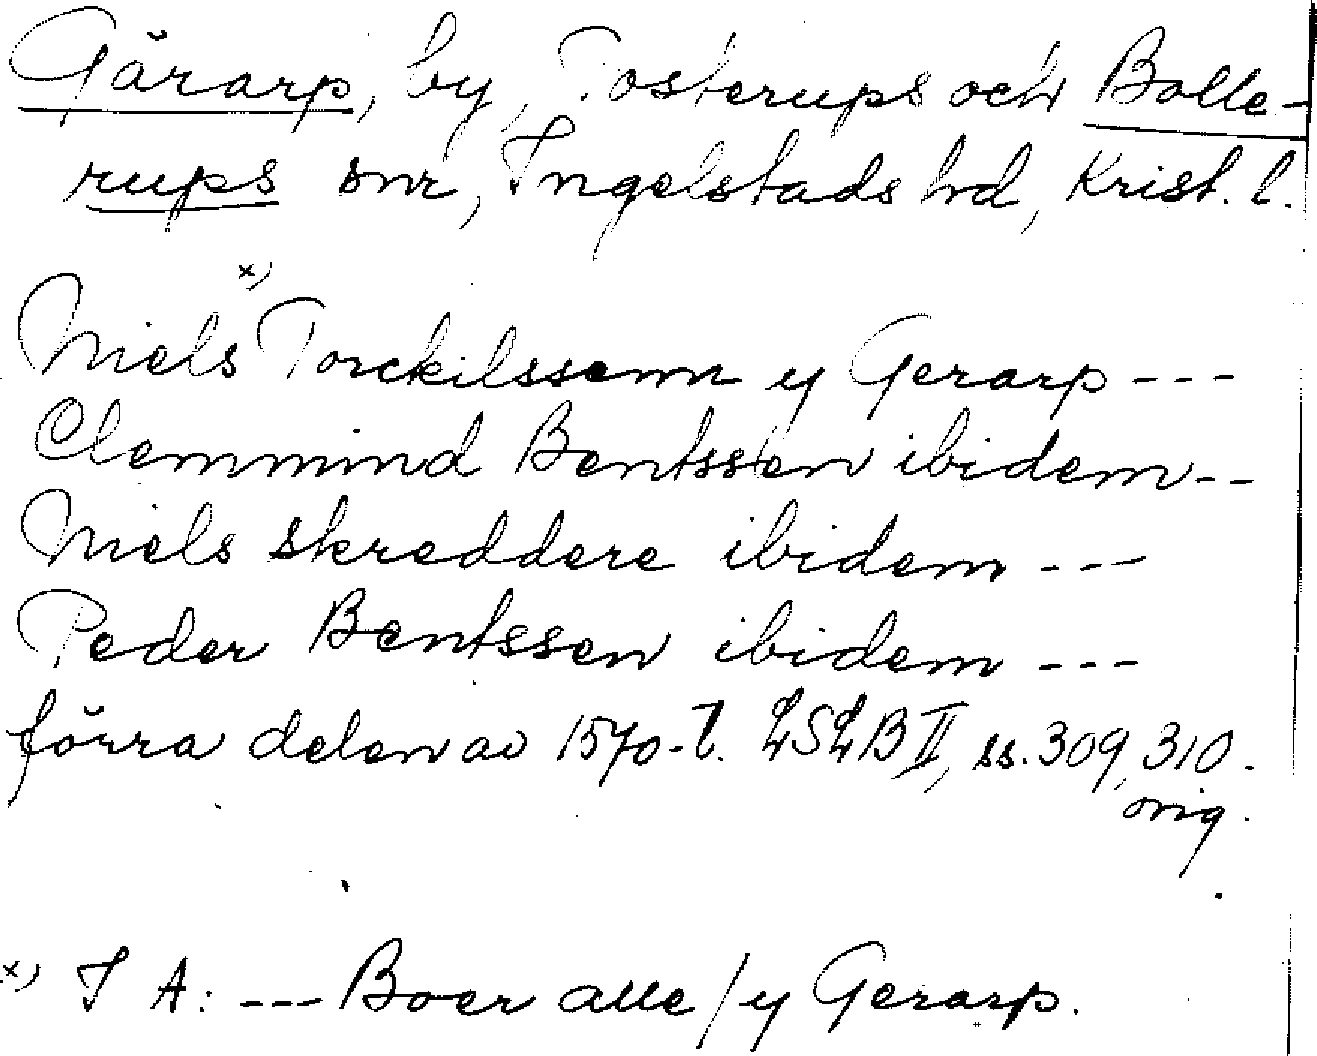 Gärarp, by, Tosterups och Bolle-
rups snr, Ingelstads hd, Krist. l.
x)
Niels Torckilssenn y Gerarp ---
Clemmind Bentssen ibidem --
Niels skreddere ibidem ---
Peder Bentssen ibidem ---
förra delen av 1570-t. LSLB II, ss. 309, 310.
orig.
x) I A: --- Boer alle / y Gerarp.